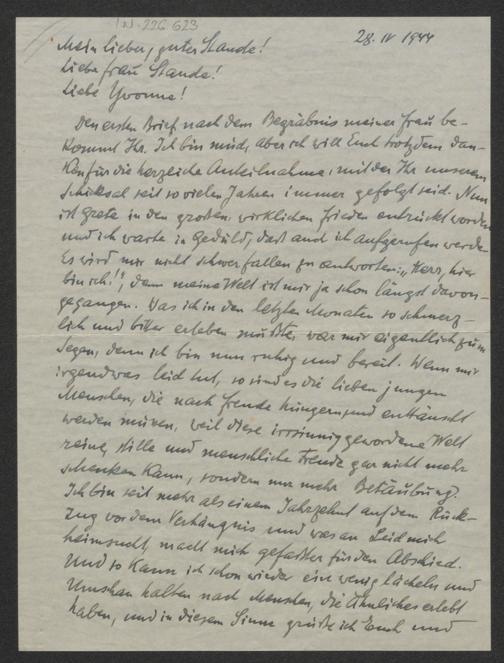 IN-226 623
28. IV 1944
Mein lieber, guter Stande!
Liebe Frau Stande!
Liebe Yvonne!
Den ersten Brief nach dem Begräbnis meiner Frau be-
kommt Ihr. Ich bin müd, aber ich will Euch trotzdem dan-
ken für die herzliche Anteilnahme, mit der Ihr unserem
Schiksal seit so vielen Jahren immer gefolgt seid. Nun
ist Grete in den großen, wirklichen Frieden entrückt worden
und ich warte in Geduld, daß auch ich aufgerufen werde.
Es wird mir nicht schwer fallen zu antworten: „Herr, hier
bin ich!", denn meine Welt ist mir ja schon längst davon-
gegangen. Was ich in den letzten Monaten so schmerz-
lich und bitter erleben mußte, war mir eigentlich zum
Segen, denn ich bin nun ruhig und bereit. Wenn mir
irgendwas leid tut, so sind es die lieben jungen
Menschen, die nach Freude hungern und enttäuscht
werden müssen, weil diese irrsinnig gewordene Welt
reine, stille und menschliche Freude gar nicht mehr
schenken kann, sondern nur mehr Betäubung.
Ich bin seit mehr als einem Jahrzehnt auf dem Rück-
zug vor dem Verhängnis und was an Leid mich
heimsucht, macht mich gefaßter für den Abschied.
Und so kann ich schon wieder ein wenig lächeln und
Umschau halten nach Menschen, die Ähnliches erlebt
haben, und in diesem Sinne grüße ich Euch und